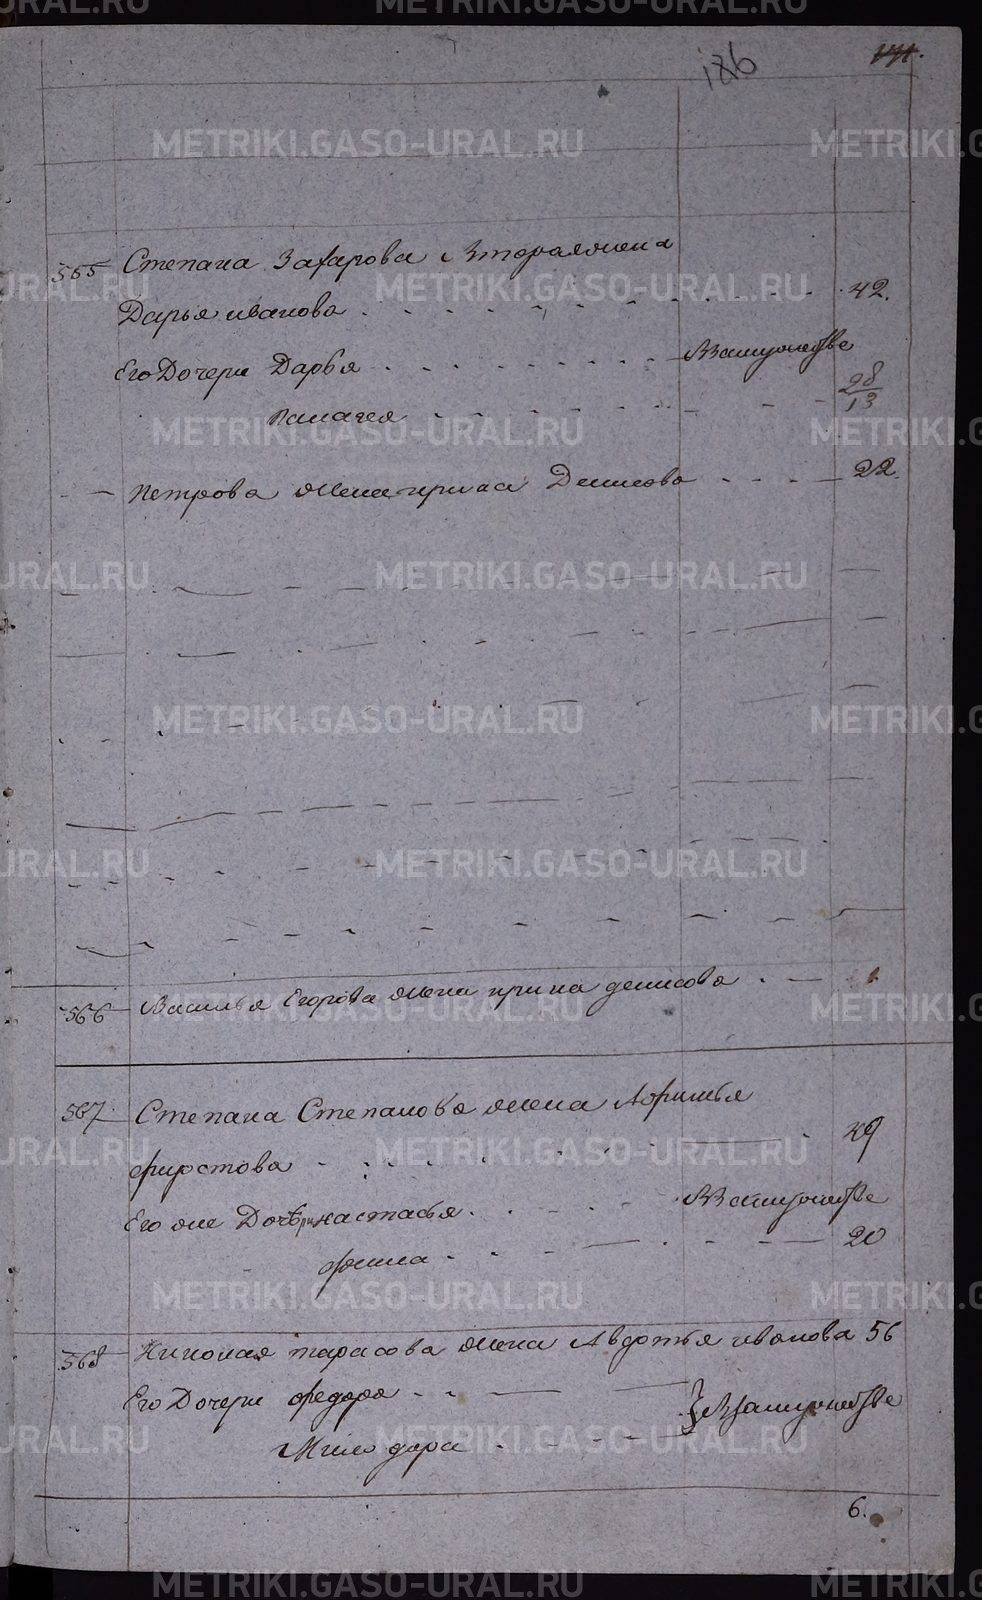 186
565 Степана Захарова 2 вторая жена
Дарья иванова 42.
Его Дочери Дарья Взамужестве
Палагея 28/13
Петрова жена ирина Денисова 22.
566 Василья Егорова жена ирина денисова
567 Степана Степанова жена
фирстова 49
Его же Дочери настасья Взамужестве
20
568 Николая тарасова жена Авдотья иванова 56
Его Дочери федора
Милодора } Взамужестве
6.
METRIKI.GASO-URAL.RU